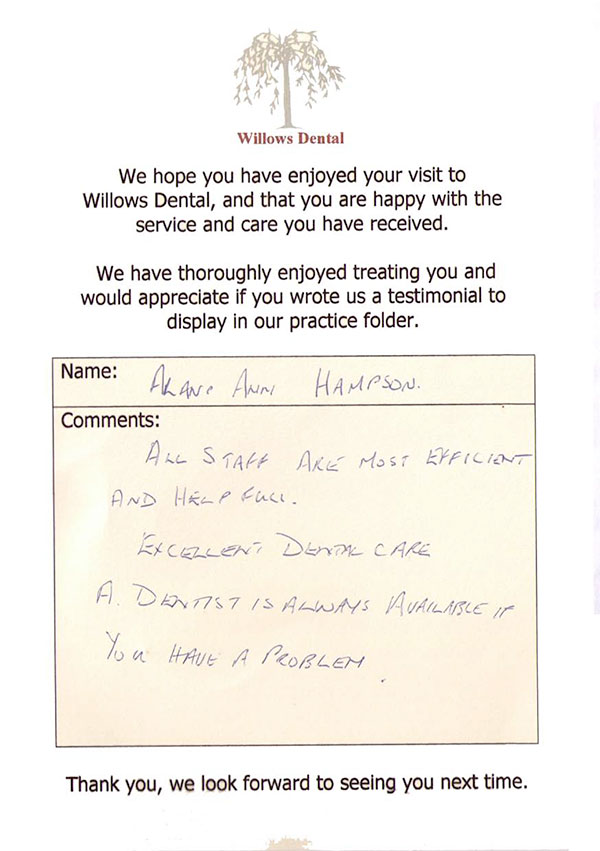 Willows Dental
We hope you have enjoyed your visit to
Willows Dental, and that you are happy with the
service and care you have received.
We have thoroughly enjoyed treating you and
would appreciate if you wrote us a testimonial to
display in our practice folder.
Name: ALAN & ANN HAMPSON.
Comments:
ALL STAFF ARE MOST EFFICIENT
AND HELPFULL.
EXCELLENT DENTAL CARE
A. DENTIST IS ALWAYS AVAILABLE IF
YOU HAVE A PROBLEM.
Thank you, we look forward to seeing you next time.